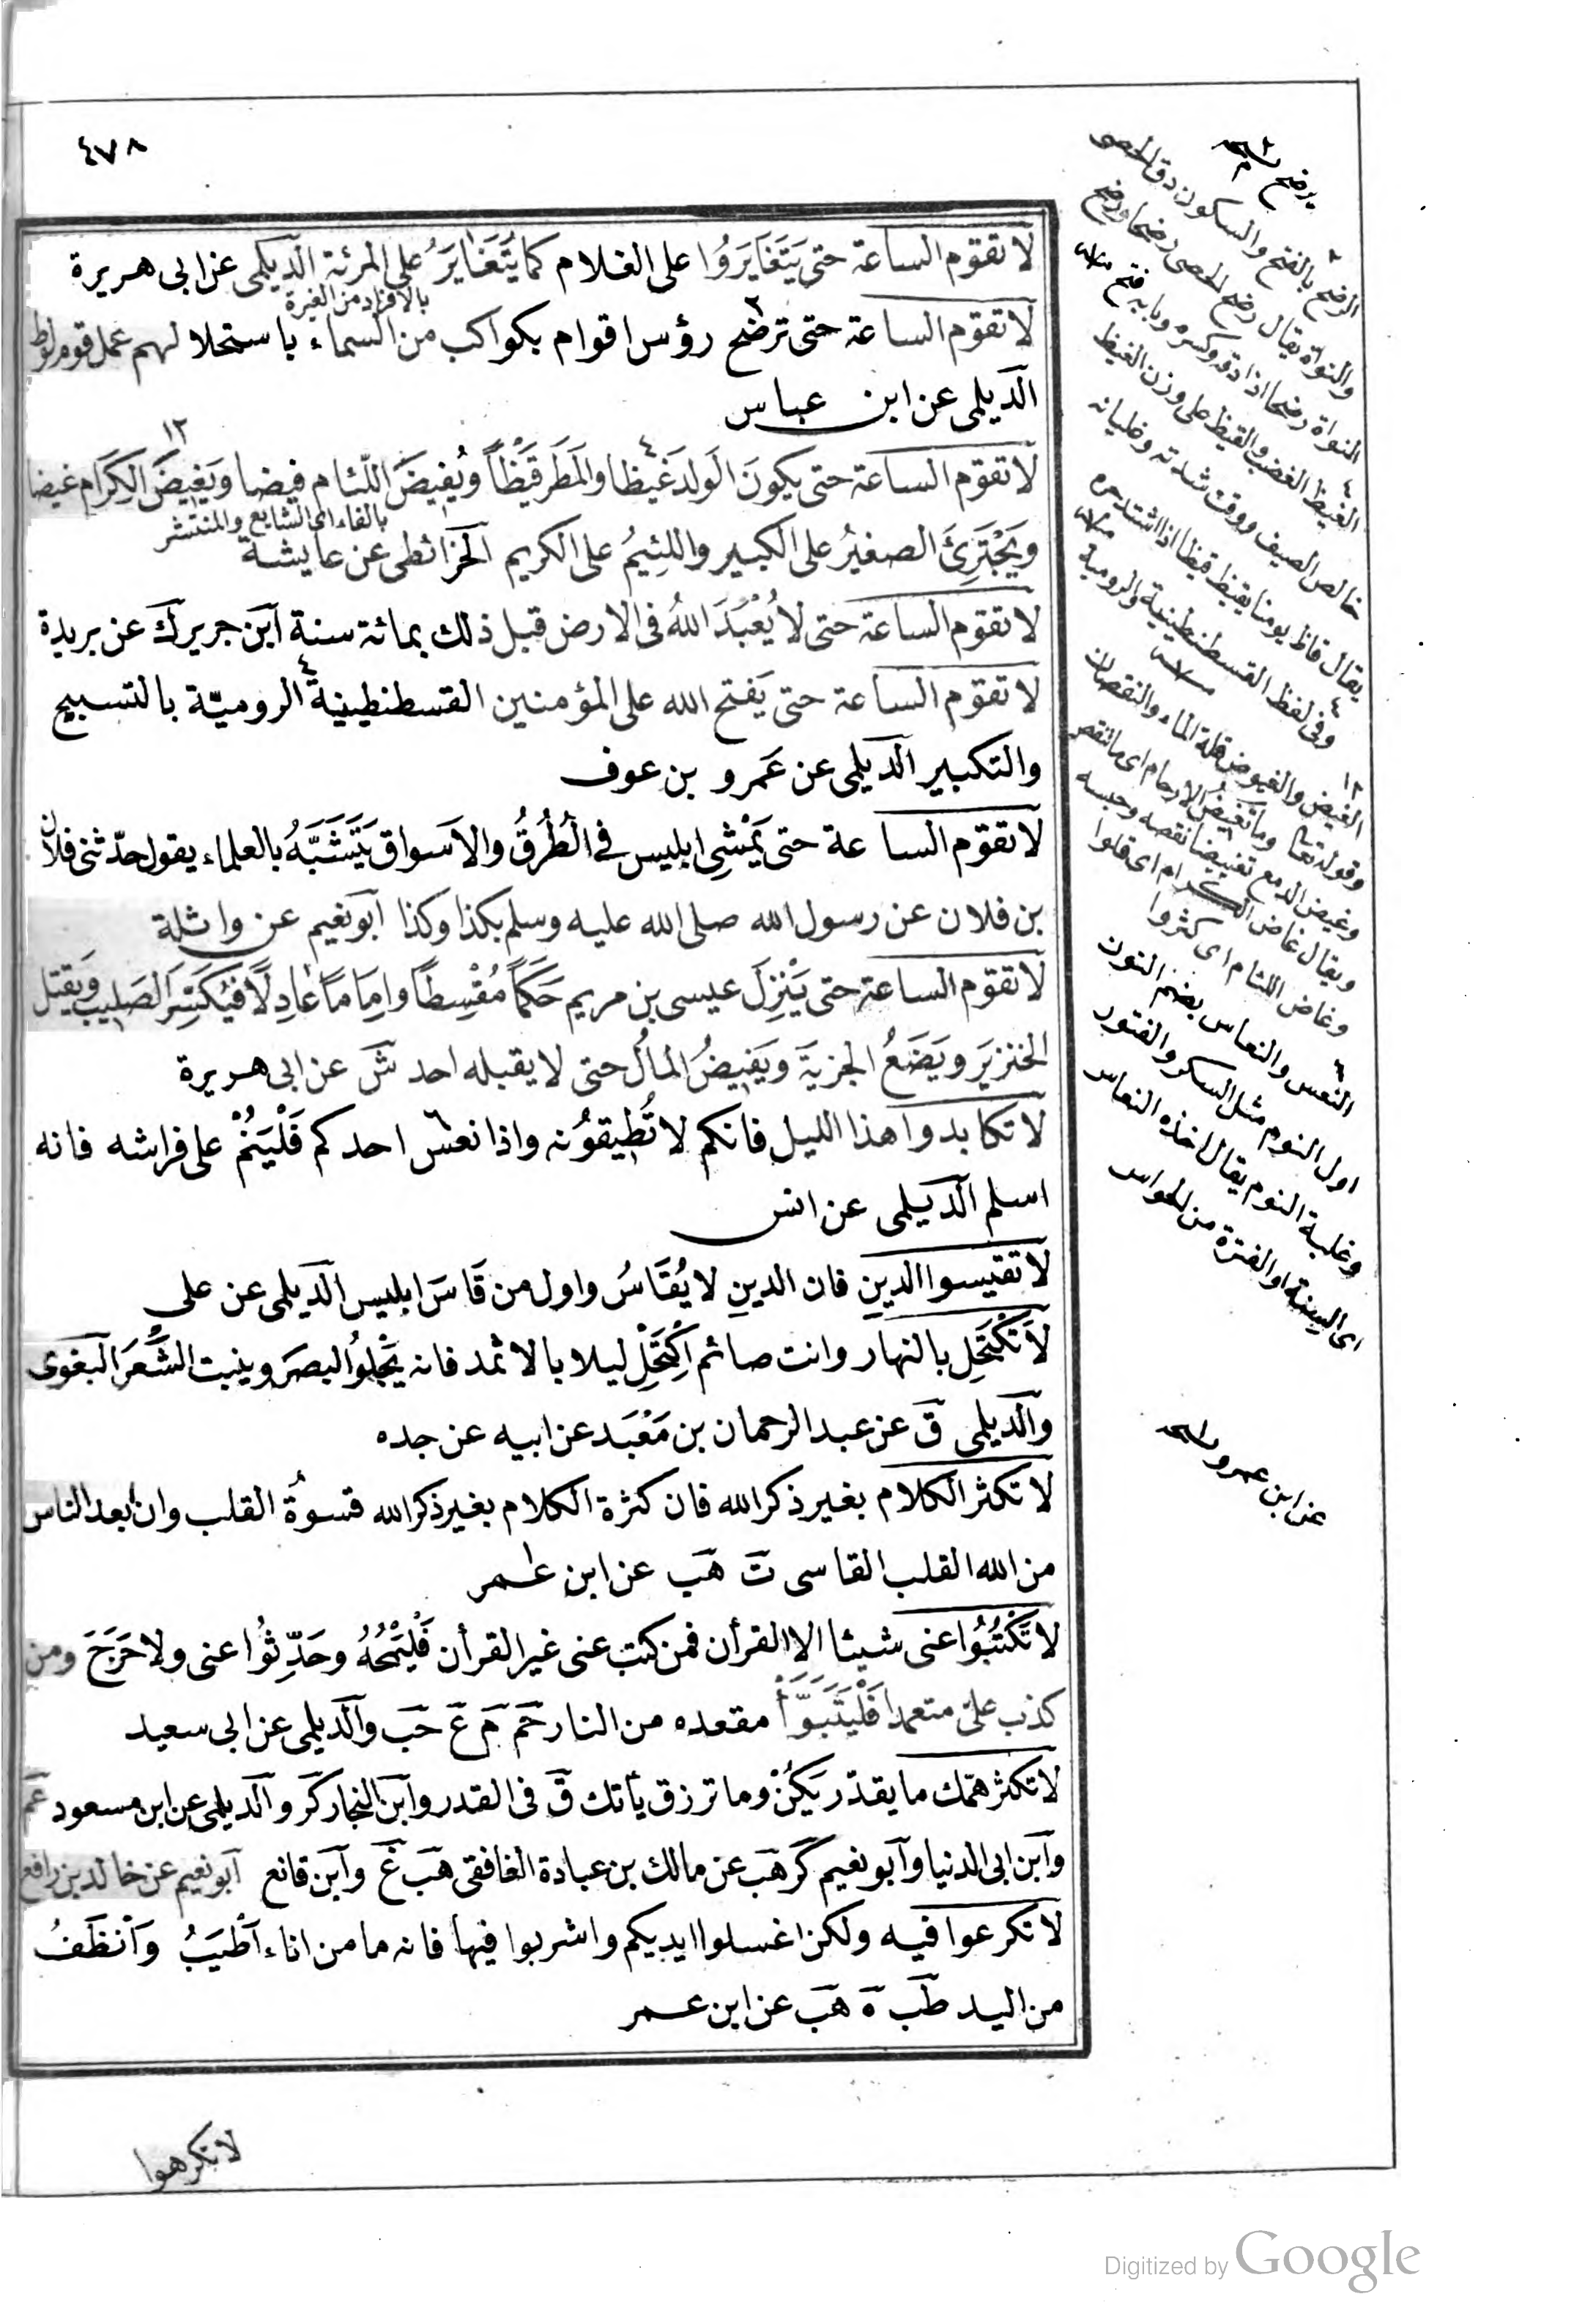 ٤٧٨
لا تقوم الساعة حتى يَتَغَايَرُوا على الغلام كما يُتَغَايَرُ على المرئة الديلمى عن ابى هريرة
بالافراد من الغيرة
لا تقوم الساعة حتى ترضح رؤس اقوام بكواكب من السماء باستحلا لهم عمل قوم لوط
الديلمى عن ابن عباس
لا تقوم الساعة حتى يكونَ الولدَ غَيظا والمَطَر قَيْظاً ويُفيضَ اللئام فيضا ويَغيضَ الكِرَام غيضا
بالفاء اى الشايع والمنتشر
ويَجْتَرِئَ الصغيرُ على الكبير واللئِيمُ على الكريم الخرائطى عن عايشة
لا تقوم الساعة حتى لا يُعْبَدَ اللهُ فى الارض قبل ذلك بمائة سنة ابن جرير ك عن بريدة
لا تقوم الساعة حتى يَفتح الله على المؤمنين القسطنطينية ٤ الروميّة بالتسبيح
والتكبير الديلمى عن عَمرو بن عوف
لا تقوم الساعة حتى يَمْشِى ابليس فى الطُرُقُ والاَسواق يَتَشَبَّهُ بالعلماء يقول حدّثنى فلان
بن فلان عن رسول الله صلى الله عليه وسلم بكذا وكذا ابو نعيم عن واثلة
لا تقوم الساعة حتى يَنْزِلَ عيسى بن مريم حَكَماً مُقْسِطاً وامِاَماً عادِلاً فيُكَسِّرَ الصَليبَ ويقتل
الخنزيرَ ويَضَعُ الجزيةَ ويَفيضُ المالُ حتى لا يقبله احد ش عن ابى هريرة
لا تكابدوا هذا الليل فانكم لا تُطيقوُنه واذا نعس احدكم فَلْيَنُمْ على فراشه فانه
اسلم الديلمى عن انس
لا تقيسوا الدينِ فان الدينِ لا يُقَاسُ واول من قَاسَ ابليس الديلمى عن على
لاَ تَكْتَحِلِ بالنهار وانت صائم اِكْتَحِلْ ليلا بالاثمد فانه يَجْلوُ البصَرَ وينبت الشَّعَرَ البغوى
والديلمى ق عن عبد الرحمان بن مَعْبَد عن ابيه عن جده
لا تكثر الكلام بغير ذكر الله فان كثرة الكلام بغير ذكر الله قسوةُ القلب وان ابعد الناس
من الله القلب القاسى ت هب عن ابن عمر
لا تَكْتُبُوُا عنى شيئا الا القرأن فمن كتب عنى غير القرأن فَلْيَمْحُهُ وحَدِّثوُا عنى ولا حَرَجَ ومن
كذب علىّ متعمدا فَلْيَتَبَوَّأْ مقعده من النار حم م ع حب والديلمى عن ابى سعيد
لا تكثر همّك ما يقدّر يَكُنْ وما ترزق يأتك ق فى القدر وابن النجار كر والديلمى عن ابن مسعود عم
وابن ابى الدنيا وابو نعيم كر هب عن مالك بن عبادة الغافقى هب غ وابن قانع ابو نعيم عن خالد بن رافع
لا تكرعوا فيه ولكن اغسلوا ايديكم واشربوا فيها فانه ما من اناء اَطْيَبُ واَنْظَفُ
من اليد طب ه هب عن ابن عمر
لا تكرهوا
يرضح
الرضح بالفتح والسكون دق الحصى
والنواة يقال رضح الحصى رضحا ورضح
النواة رضحا اذا دقه وكسره وبابه فتح
الغيظ الغضب والقيظ على وزن الغيظ
خالص الصيف ووقت شدته وغليانه
يقال قاظ يومنا يقيظ قيظا اذا اشتد حره
وفى لفظ القسطنطينية والرومية
الغيض والغيوض قلة الماء والنقصان
وقوله تعالى وما تغيض الارحام اى ما تنقص
وغيض الدمع تغييضا نقصه وحبسه
ويقال غاض الكرام اى قلوا
وغاض اللئام اى كثروا
النعس والنعاس بضم النون
اول النوم مثل السكر والفتور
وغلبة النوم يقال اخذه النعاس
اى السنة او الفترة من الحواس
عن ابن عمرو
Digitized by Google